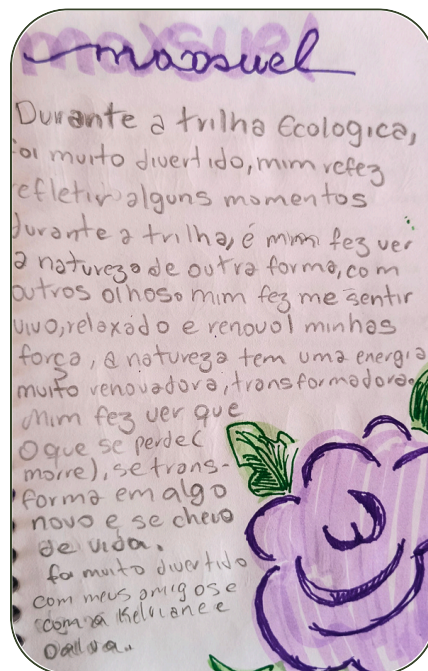 maxsuel
Durante a trilha Ecologica,
foi muito divertido, mim refez
refletir alguns momentos
durante a trilha, é mim fez ver
a natureza de outra forma, com
outros olhos. mim fez me sentir
vivo, relaxado e renovol minhas
força, a natureza tem uma energia
muito renovadora, transformadora.
Mim fez ver que
o que se perde(
morre), se trans-
forma em algo
novo e se cheio
de vida.
foi muito divertido
com meus amigos e
com a Kelviane e